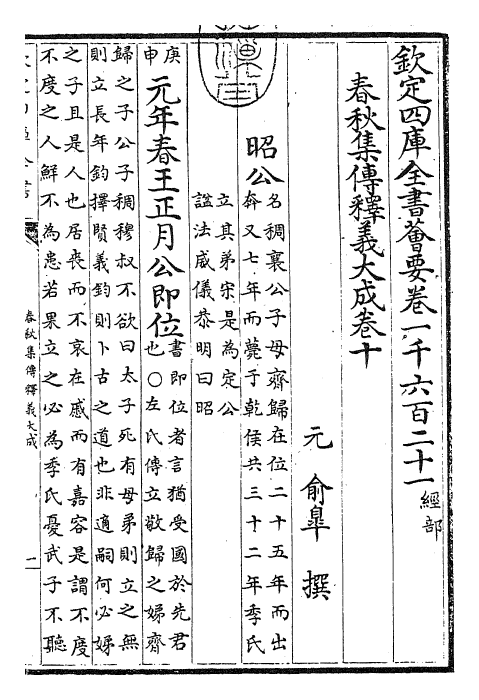 欽定四庫全書薈要卷一千六百二十一 經部
春秋集傳釋義大成卷十
元 俞皐 撰
昭公
名稠襄公子母齊歸在位二十五年而出
奔又七年而薨于乾侯共三十二年季氏
立其弟宋是為定公
諡法威儀恭明曰昭
庚申
元年春王正月公即位
書即位者言猶受國於先君
也○左氏傳立敬歸之娣齊
歸之子公子稠穆叔不欲曰太子死有母弟則立之無
則立長年鈞擇賢義鈞則卜古之道也非適嗣何必娣
之子且是人也居喪而不哀在慼而有嘉容是謂不度
不度之人鮮不為患若果立之必為季氏憂武子不聽
春秋集傳釋義大成
一